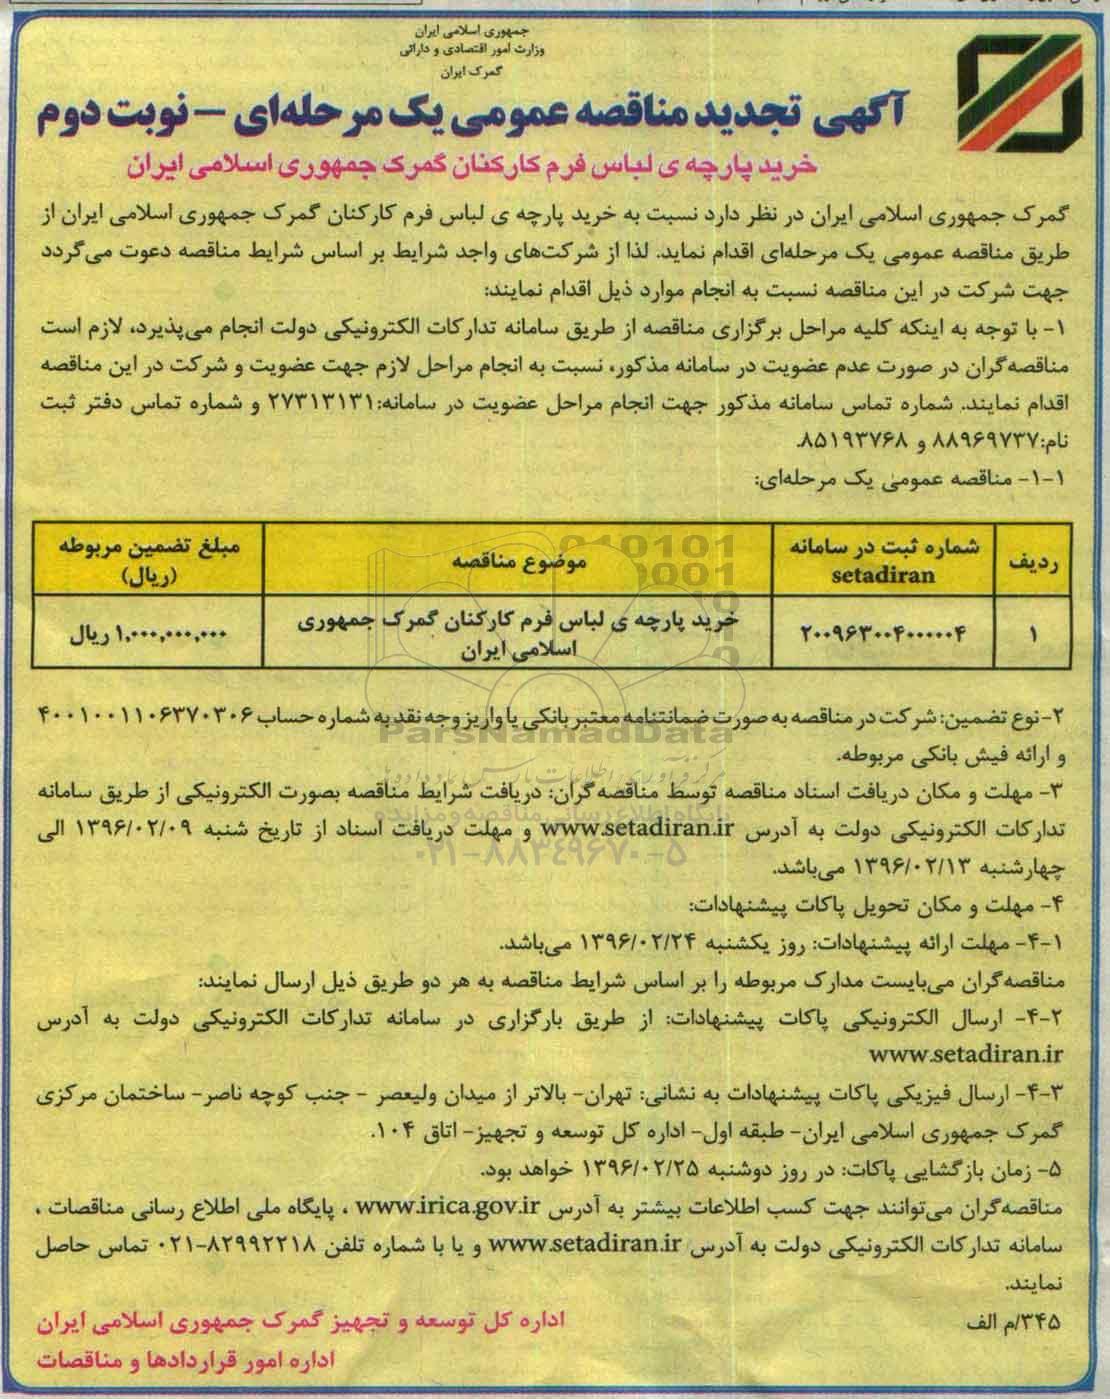 جمهوری اسلامی ایران
وزارت امور اقتصادی و دارائی
گمرک ایران
آگهی تجدید مناقصه عمومی یک مرحله‌ای – نوبت دوم
خرید پارچه ی لباس فرم کارکنان گمرک جمهوری اسلامی ایران
گمرک جمهوری اسلامی ایران در نظر دارد نسبت به خرید پارچه ی لباس فرم کارکنان گمرک جمهوری اسلامی ایران از
طریق مناقصه عمومی یک مرحله‌ای اقدام نماید. لذا از شرکت‌های واجد شرایط بر اساس شرایط مناقصه دعوت می‌گردد
جهت شرکت در این مناقصه نسبت به انجام موارد ذیل اقدام نمایند:
۱- با توجه به اینکه کلیه مراحل برگزاری مناقصه از طریق سامانه تدارکات الکترونیکی دولت انجام می‌پذیرد، لازم است
مناقصه‌گران در صورت عدم عضویت در سامانه مذکور، نسبت به انجام مراحل لازم جهت عضویت و شرکت در این مناقصه
اقدام نمایند. شماره تماس سامانه مذکور جهت انجام مراحل عضویت در سامانه:۲۷۳۱۳۱۳۱ و شماره تماس دفتر ثبت
نام:۸۸۹۶۹۷۳۷ و ۸۵۱۹۳۷۶۸.
۱-۱- مناقصه عمومی یک مرحله‌ای:
ردیف | شماره ثبت در سامانه setadiran | موضوع مناقصه | مبلغ تضمین مربوطه (ریال)
۱ | ۲۰۰۹۶۳۰۰۴۰۰۰۰۰۴ | خرید پارچه ی لباس فرم کارکنان گمرک جمهوری اسلامی ایران | ۱,۰۰۰,۰۰۰,۰۰۰ ریال
۲-نوع تضمین: شرکت در مناقصه به صورت ضمانتنامه معتبر بانکی یا واریز وجه نقد به شماره حساب ۴۰۰۱۰۰۱۱۰۶۳۷۰۳۰۶
و ارائه فیش بانکی مربوطه.
ParsNamadData
۳- مهلت و مکان دریافت اسناد مناقصه توسط مناقصه‌گران: دریافت شرایط مناقصه بصورت الکترونیکی از طریق سامانه
تدارکات الکترونیکی دولت به آدرس www.setadiran.ir و مهلت دریافت اسناد از تاریخ شنبه ۱۳۹۶/۰۲/۰۹ الی
چهارشنبه ۱۳۹۶/۰۲/۱۳ می‌باشد.
۰۲۱-۸۸۳۴۹۶۷۰-۵
۴- مهلت و مکان تحویل پاکات پیشنهادات:
۴-۱- مهلت ارائه پیشنهادات: روز یکشنبه ۱۳۹۶/۰۲/۲۴ می‌باشد.
مناقصه‌گران می‌بایست مدارک مربوطه را بر اساس شرایط مناقصه به هر دو طریق ذیل ارسال نمایند:
۴-۲- ارسال الکترونیکی پاکات پیشنهادات: از طریق بارگزاری در سامانه تدارکات الکترونیکی دولت به آدرس
www.setadiran.ir
۴-۳- ارسال فیزیکی پاکات پیشنهادات به نشانی: تهران- بالاتر از میدان ولیعصر - جنب کوچه ناصر- ساختمان مرکزی
گمرک جمهوری اسلامی ایران- طبقه اول- اداره کل توسعه و تجهیز- اتاق ۱۰۴.
۵- زمان بازگشایی پاکات: در روز دوشنبه ۱۳۹۶/۰۲/۲۵ خواهد بود.
مناقصه‌گران می‌توانند جهت کسب اطلاعات بیشتر به آدرس www.irica.gov.ir ، پایگاه ملی اطلاع رسانی مناقصات ،
سامانه تدارکات الکترونیکی دولت به آدرس www.setadiran.ir و یا با شماره تلفن ۰۲۱-۸۲۹۹۲۲۱۸ تماس حاصل
نمایند.
۳۴۵/م الف
اداره کل توسعه و تجهیز گمرک جمهوری اسلامی ایران
اداره امور قراردادها و مناقصات